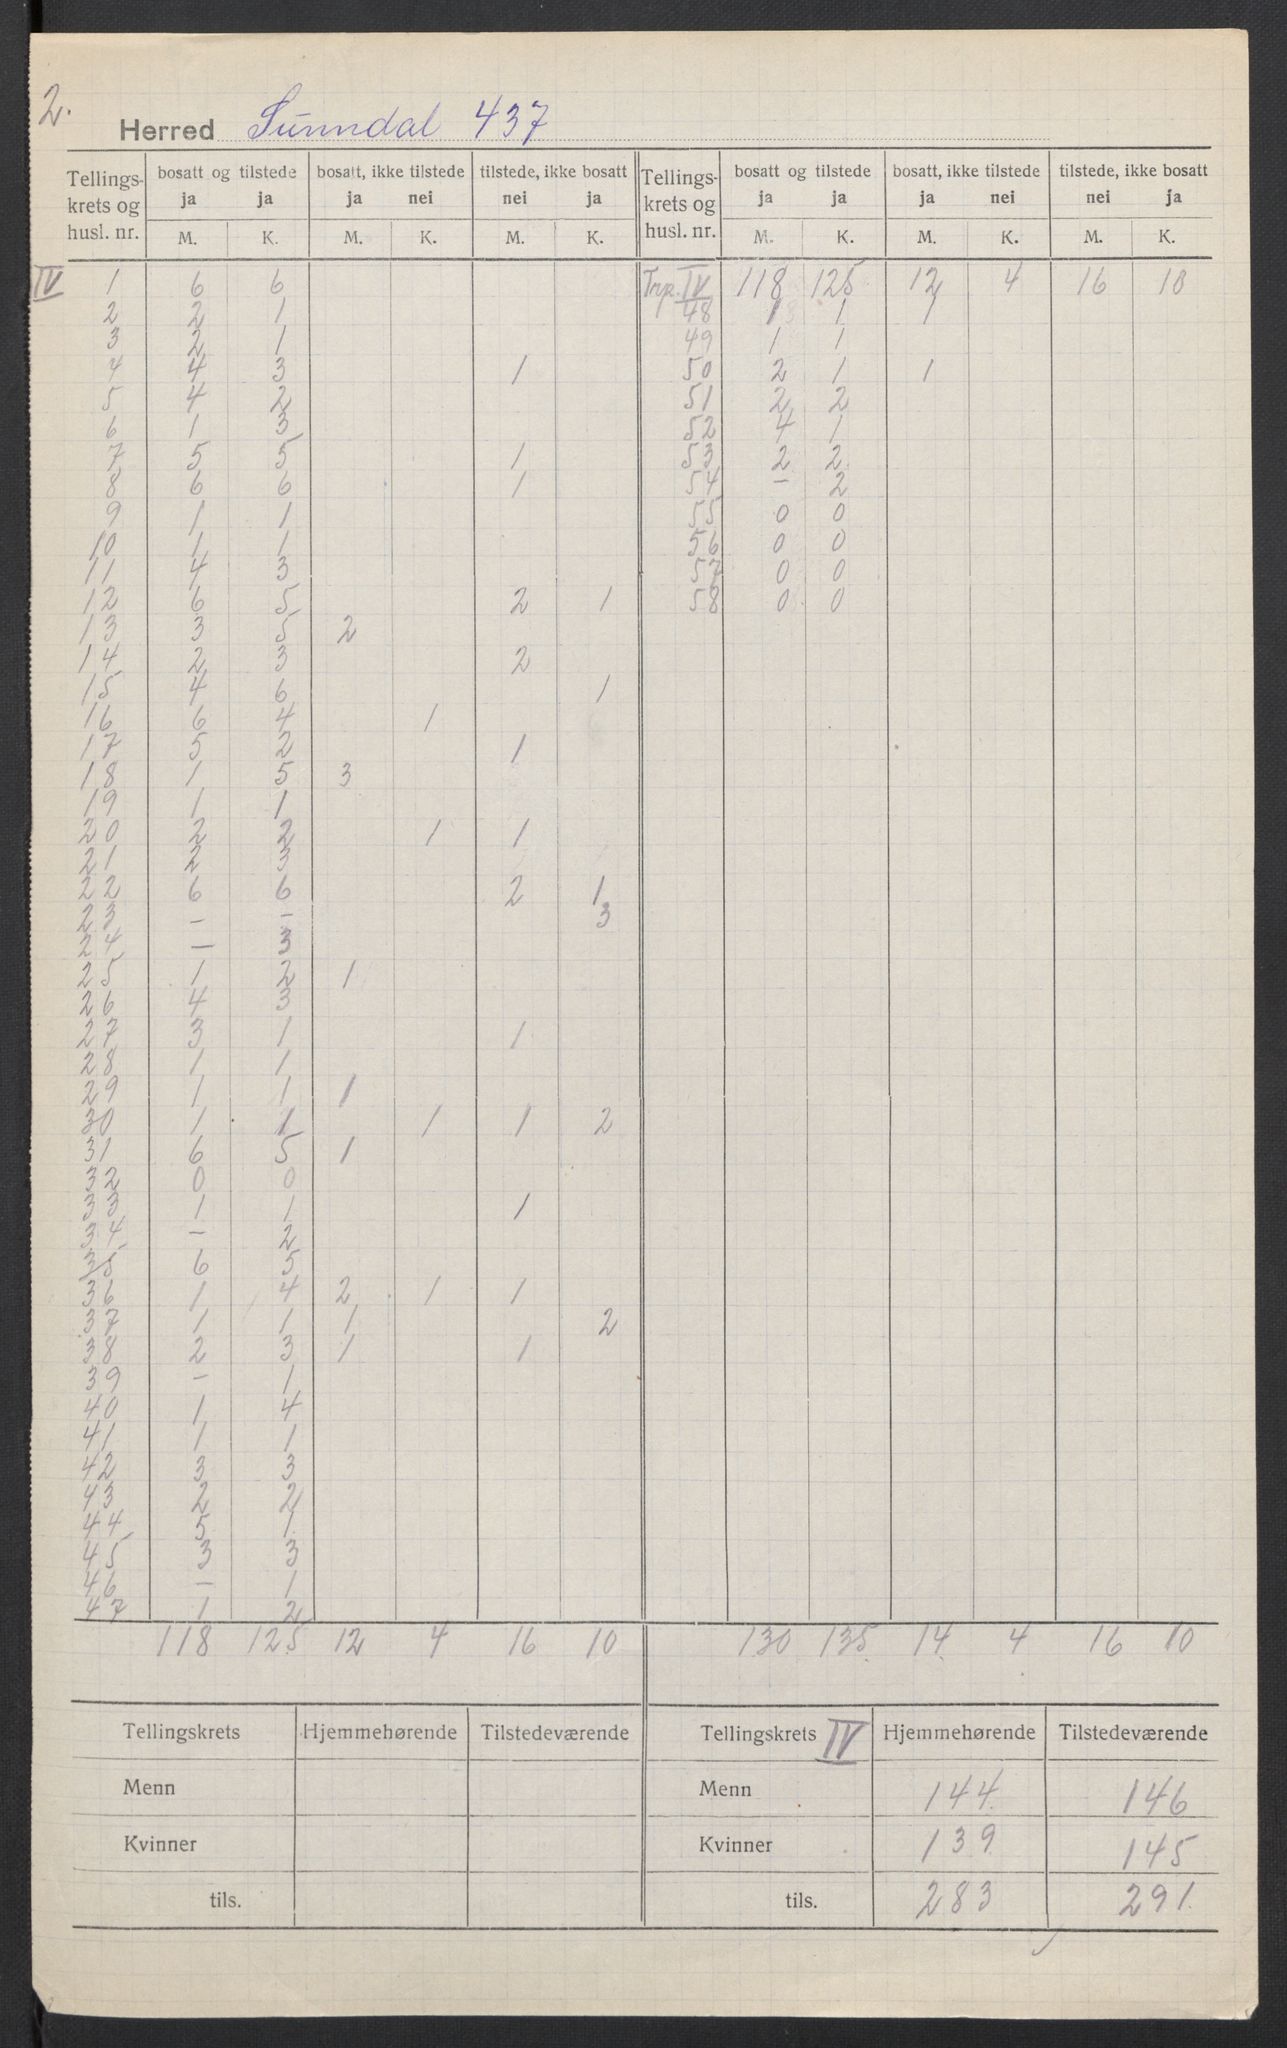 2.
Herred Sunndal 437
Tellingskrets og husl. nr. | bosatt og tilstede ja ja | bosatt, ikke tilstede ja nei | tilstede, ikke bosatt nei ja | Tellingskrets og husl. nr. | bosatt og tilstede ja ja | bosatt, ikke tilstede ja nei | tilstede, ikke bosatt nei ja
M. K. M. K. M. K. M. K. M. K. M. K.
IV 1 6 6 Trp. IV 118 125 12 4 16 10
2 2 1 48 1 1 1
3 2 1 49 1 1
4 4 3 1 50 2 1 1
5 4 2 51 2 2
6 1 3 52 4 1
7 5 5 1 53 2 2
8 6 6 1 54 – 2
9 1 1 55 0 0
10 1 1 56 0 0
11 4 3 57 0 0
12 6 5 2 1 58 0 0
13 3 5 2
14 2 3 2
15 4 6 1
16 6 4 1
17 5 2 1
18 1 5 3
19 1 1
20 2 2 1 1
21 2 3
22 6 6 2 1
23 – – 3
24 – 3
25 1 2 1
26 4 3
27 3 1 1
28 1 1
29 1 1 1
30 1 1 1 1 2
31 6 5 1
32 0 0
33 1 1 1
34 – 2
35 6 5
36 1 4 2 1 1
37 1 1 1 2
38 2 3 1 1
39 – 1
40 1 4
41 1 1
42 3 3
43 2 2
44 5 1
45 3 3
46 – 1
47 1 2
118 125 12 4 16 10 130 135 14 4 16 10
Tellingskrets Hjemmehørende Tilstedeværende Tellingskrets IV Hjemmehørende Tilstedeværende
Menn Menn 144 146
Kvinner Kvinner 139 145
tils. tils. 283 291